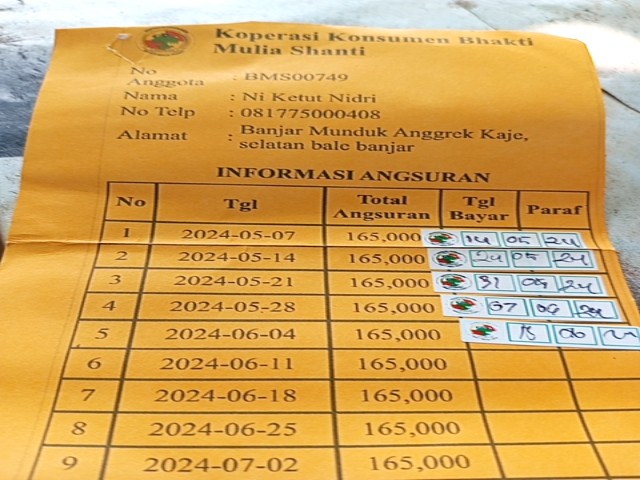 Koperasi Konsumen Bhakti
Mulia Shanti
No Anggota : BMS00749
Nama : Ni Ketut Nidri
No Telp : 081775000408
Alamat : Banjar Munduk Anggrek Kaje,
selatan bale banjar
INFORMASI ANGSURAN
No Tgl Total Angsuran Tgl Bayar Paraf
1 2024-05-07 165,000 14 05 24
2 2024-05-14 165,000 24 05 24
3 2024-05-21 165,000 31 05 24
4 2024-05-28 165,000 07 06 24
5 2024-06-04 165,000 15 06
6 2024-06-11 165,000
7 2024-06-18 165,000
8 2024-06-25 165,000
9 2024-07-02 165,000